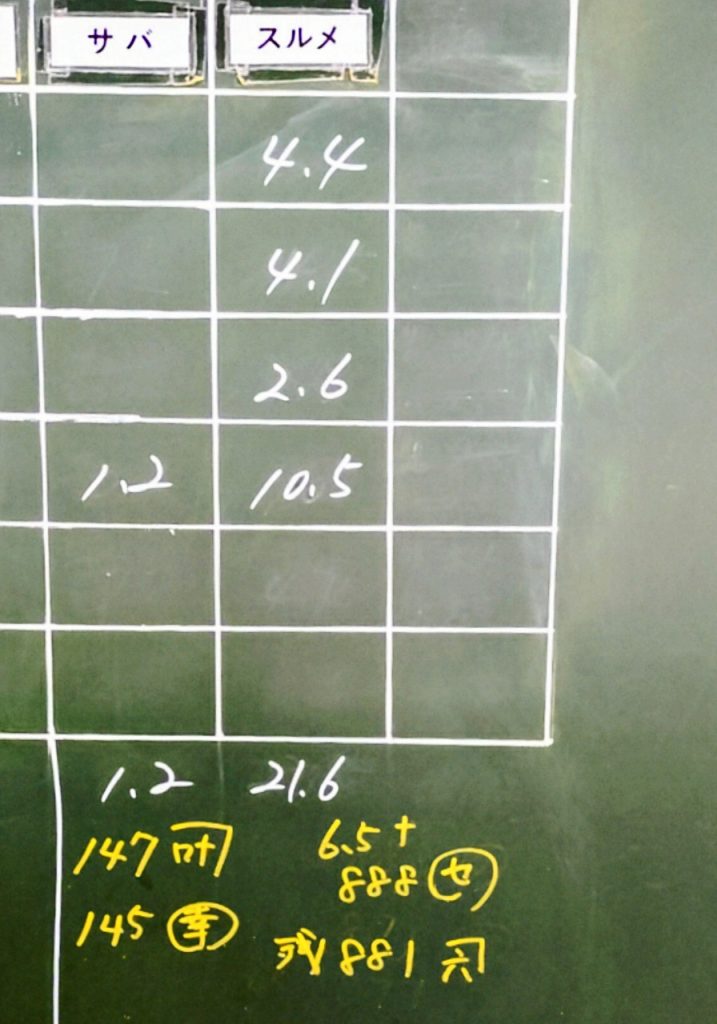 サバ スルメ
4.4
4.1
2.6
1.2 10.5
1.2 21.6
147 6.5
888 セ
145
残 881